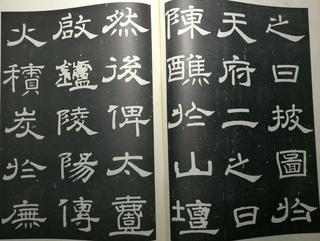 之日披圖於
天府二之日
陳醮於山壇
然後俾太壹
啟鑪陵陽傳
火積炭於廡